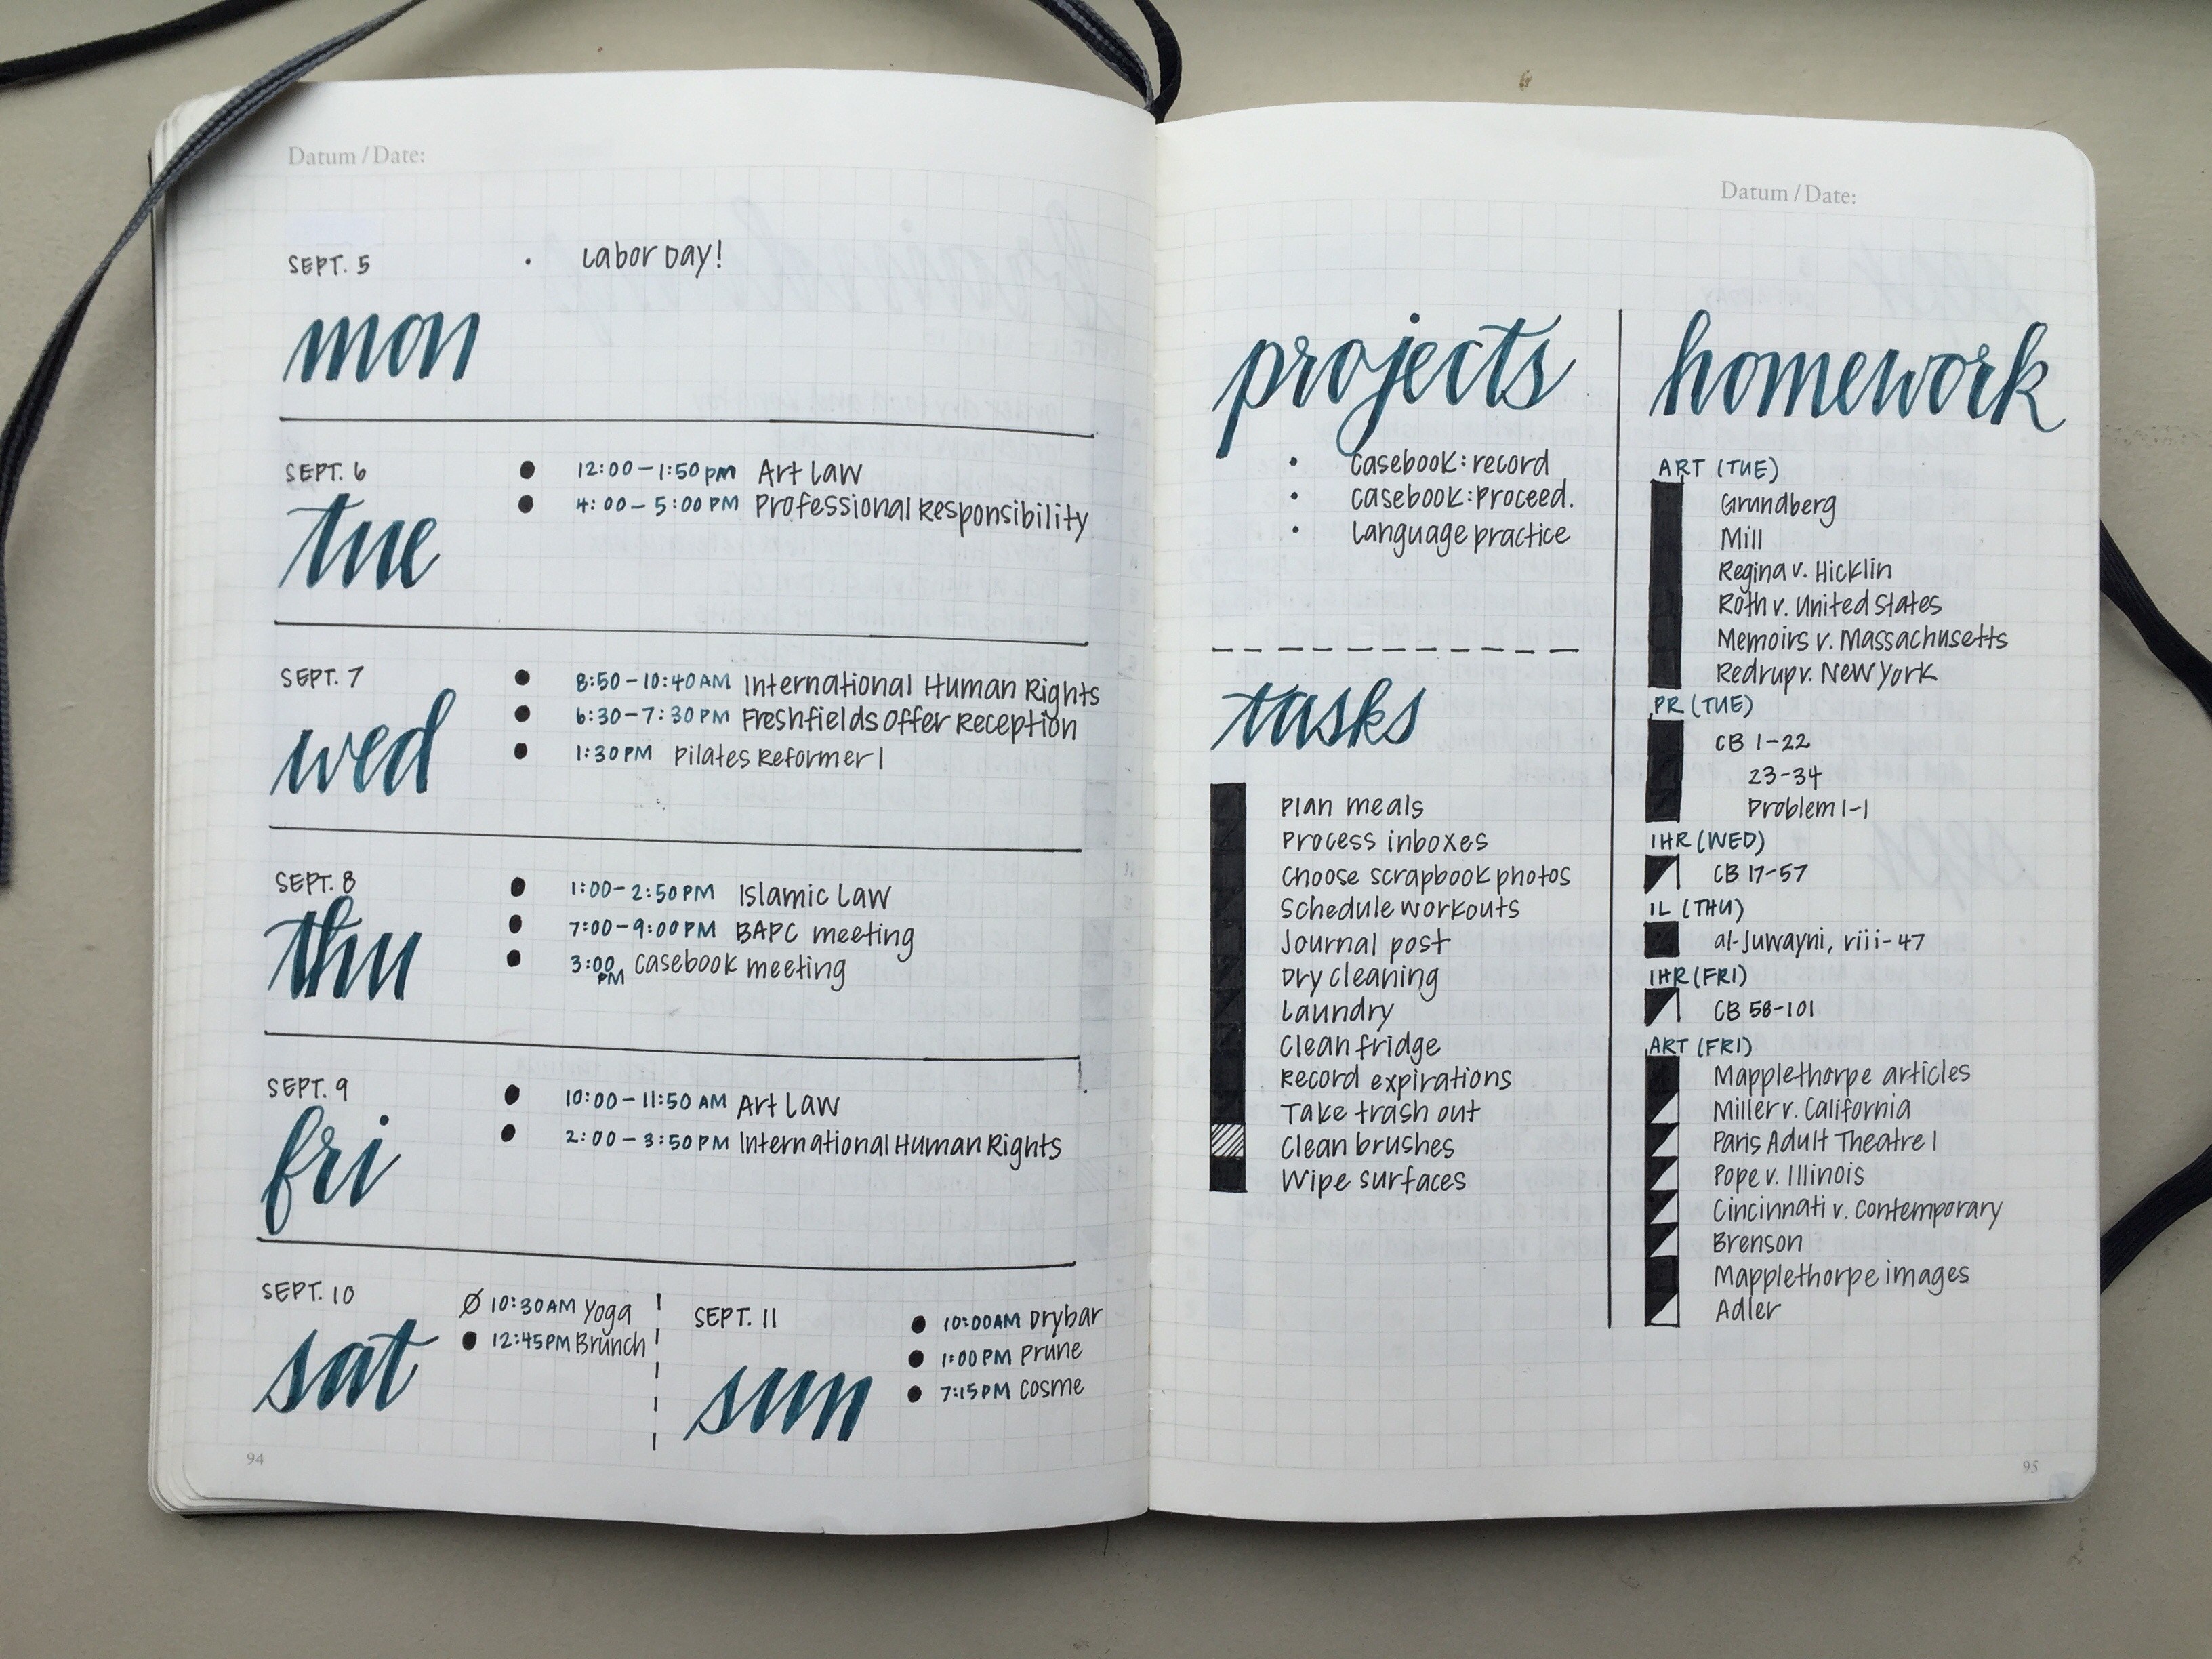 Datum / Date:
SEPT. 5
• Labor Day!
mon
SEPT. 6
• 12:00-1:50 pm Art Law
• 4:00-5:00 PM Professional Responsibility
tue
SEPT. 7
• 8:50-10:40 AM International Human Rights
• 6:30-7:30 PM Freshfields Offer Reception
• 1:30 PM Pilates Reformer 1
wed
SEPT. 8
• 1:00-2:50 PM Islamic Law
• 7:00-9:00 PM BAPC meeting
• 3:00 PM casebook meeting
thu
SEPT. 9
• 10:00-11:50 AM Art Law
• 2:00-3:50 PM International Human Rights
fri
SEPT. 10
Ø 10:30 AM Yoga
• 12:45 PM Brunch
sat
SEPT. 11
• 10:00 AM Drybar
• 1:00 PM Prune
• 7:15 PM Cosme
sun
94
Datum / Date:
projects
• casebook: record
• casebook: Proceed.
• Language practice
tasks
Plan meals
Process inboxes
Choose scrapbook photos
Schedule workouts
Journal post
Dry cleaning
Laundry
Clean fridge
Record expirations
Take trash out
Clean brushes
Wipe surfaces
homework
ART (TUE)
Grundberg
Mill
Regina v. Hicklin
Roth v. United States
Memoirs v. Massachusetts
Redrup v. New York
PR (TUE)
CB 1-22
23-34
Problem 1-1
IHR (WED)
CB 17-57
IL (THU)
al-Juwayni, viii-47
IHR (FRI)
CB 58-101
ART (FRI)
Mapplethorpe articles
Miller v. California
Paris Adult Theatre I
Pope v. Illinois
Cincinnati v. Contemporary
Brenson
Mapplethorpe images
Adler
95